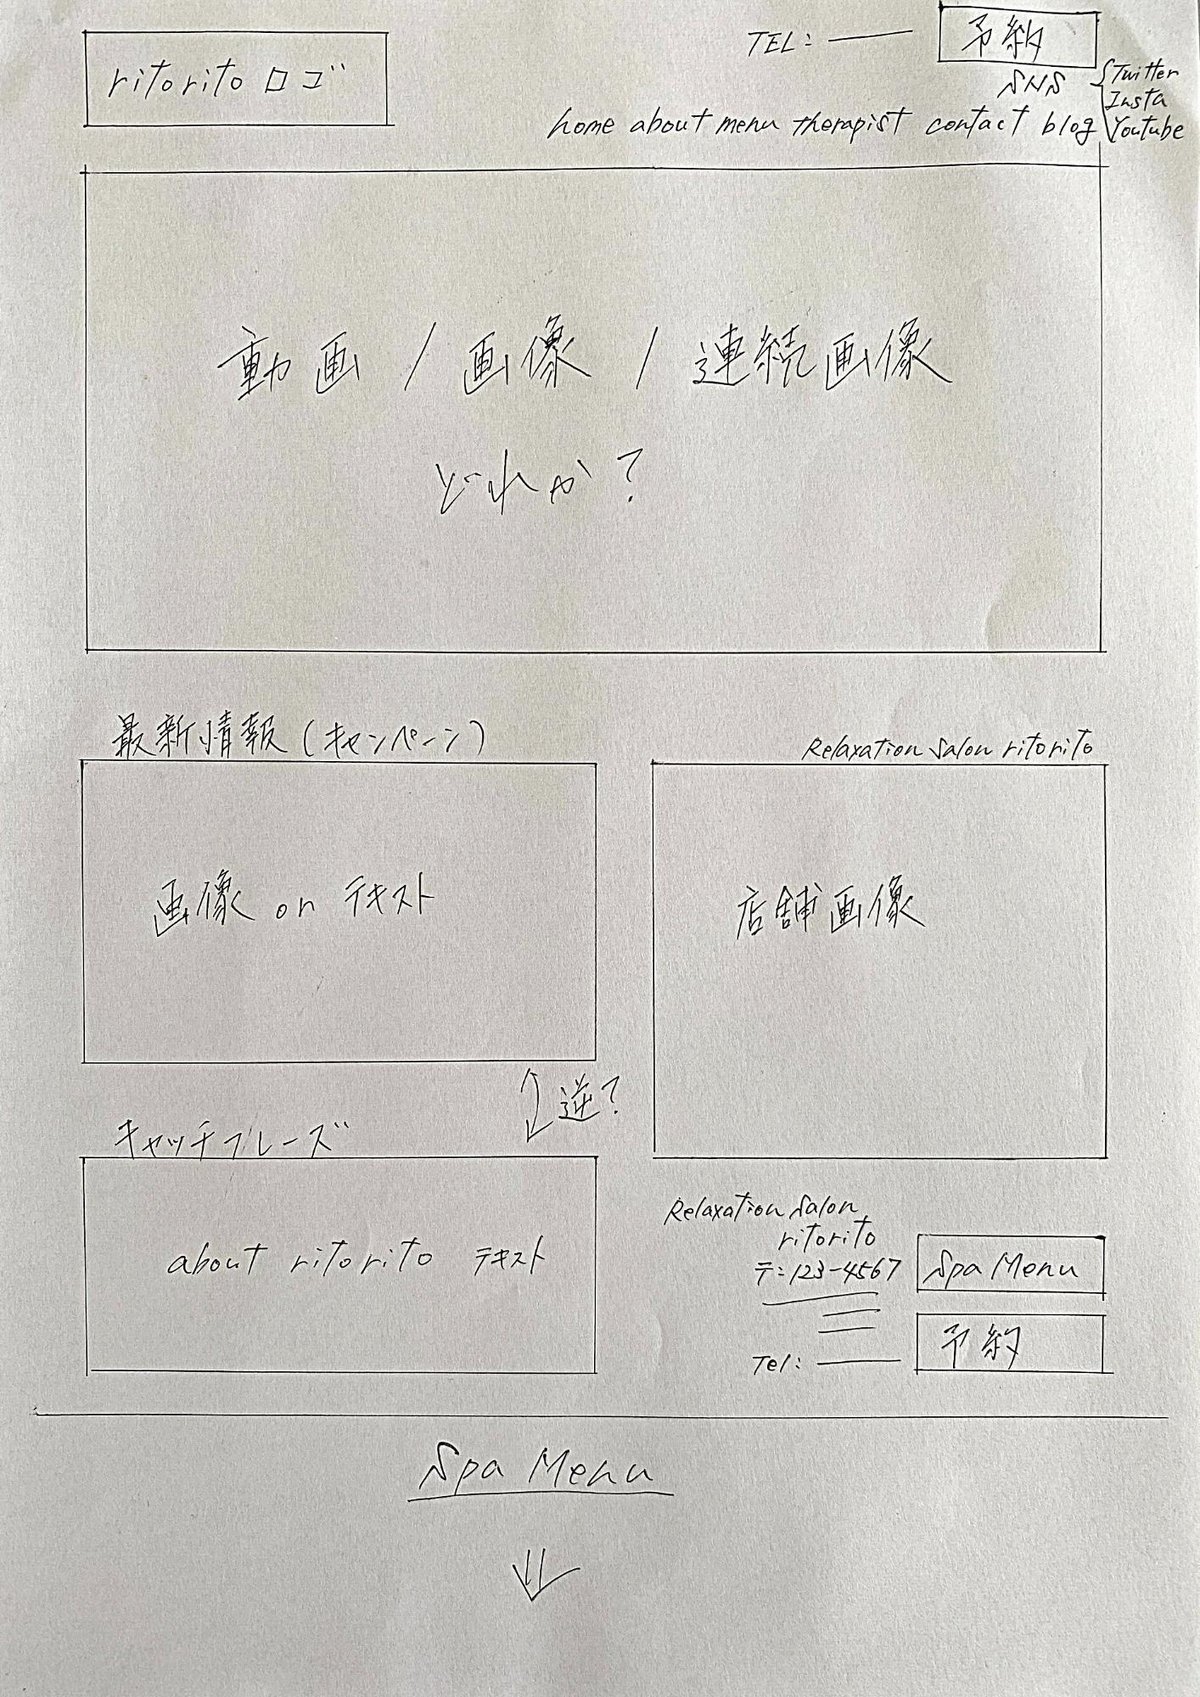 ritorito ロゴ
TEL:
予約
SNS
Twitter
Insta
Youtube
home about menu therapist contact blog
動画 / 画像 / 連続画像
どれか?
最新情報(キャンペーン)
画像 on テキスト
Relaxation Salon ritorito
店舗画像
逆?
キャッチフレーズ
about ritorito テキスト
Relaxation Salon
ritorito
〒:123-4567
Tel:
Spa Menu
予約
Spa Menu